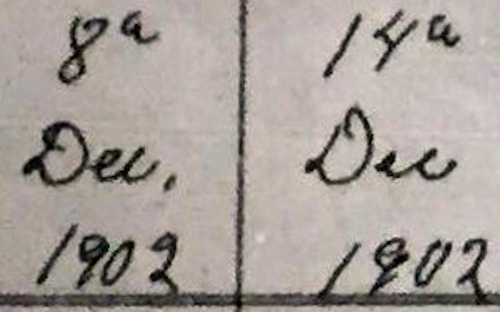 8ª
Dec.
1902
14ª
Dec
1902